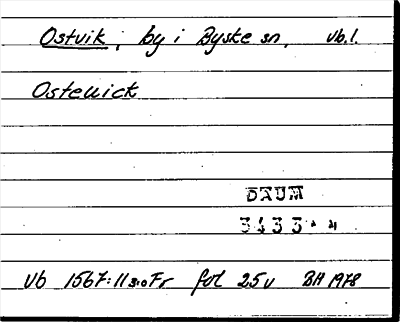 Ostvik, by i Byske sn, Vb.l.
Ostewick
DAUM
3433
Vb 1567:11 s.o Fr fol 25v BH 1978